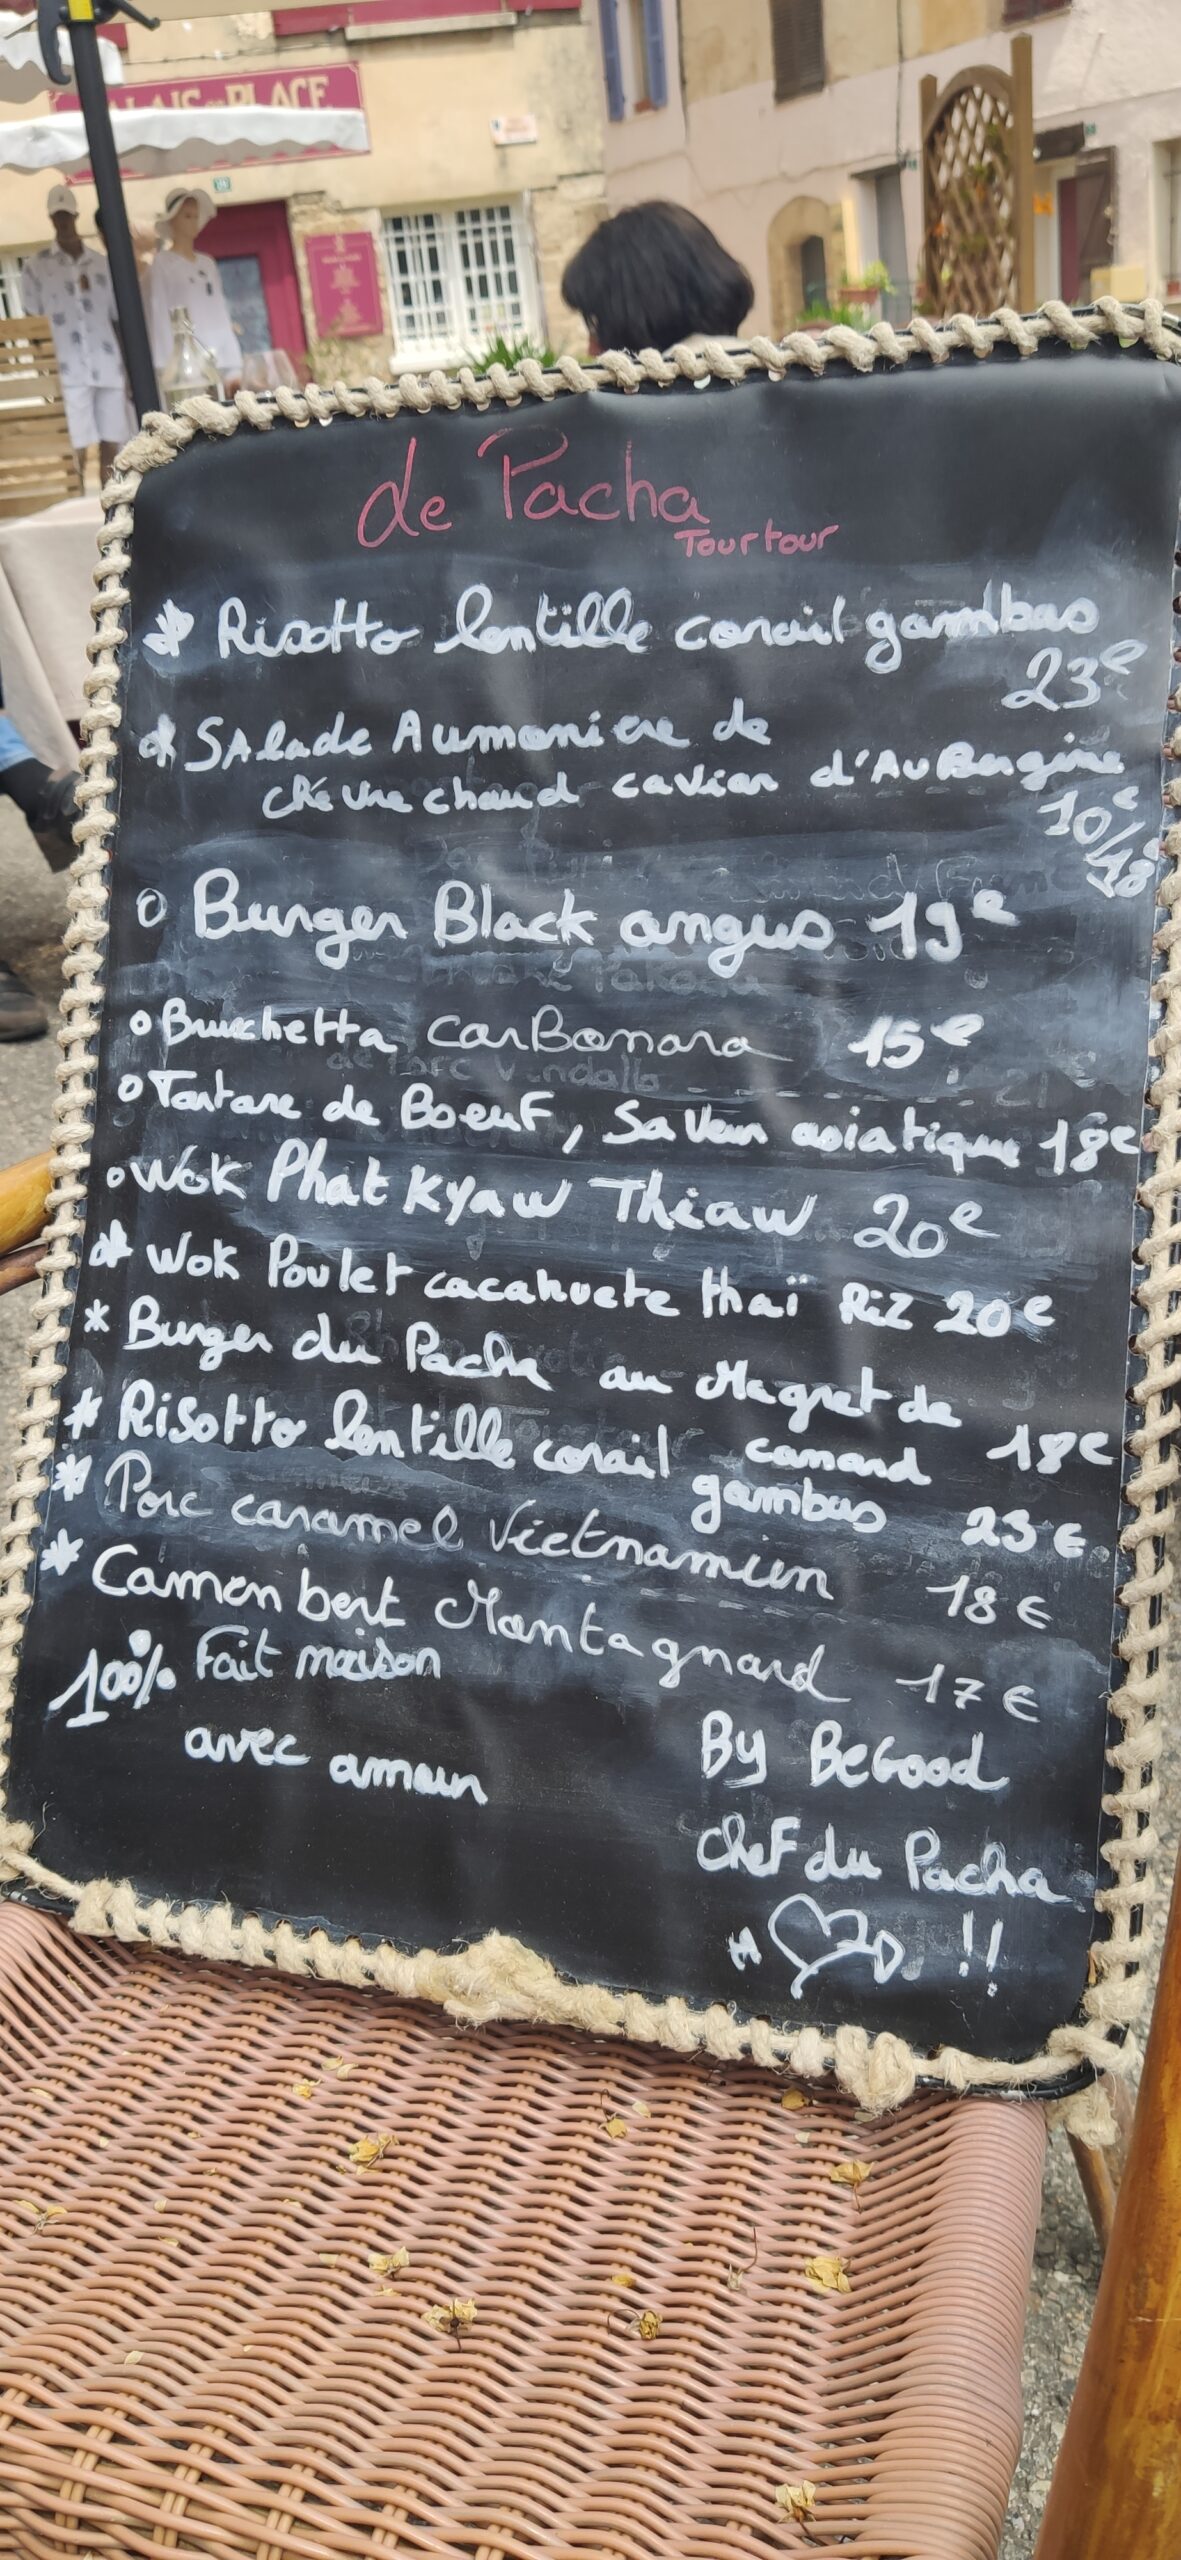 PLACE
de Pacha
Tourtour
* Risotto lentille corail gambas
23€
* SAlade Aumoniere de
chèvre chaud caviar d'AuBergine
10€/18€
o Burger Black angus 19€
o Bruschetta carBonara 15€
o Tartare de BoeuF, SaVeur asiatique 18€
o Wok Phat Kyaw Thiaw 20€
* Wok Poulet cacahuete thaï Riz 20€
* Burger du Pacha au Magret de
canard 18€
* Risotto lentille corail gambas 23€
* Porc caramel Vietnamien 18€
* Camenbert Montagnard 17€
100% Fait maison
avec amour
By BeGood
CheF du Pacha
!!